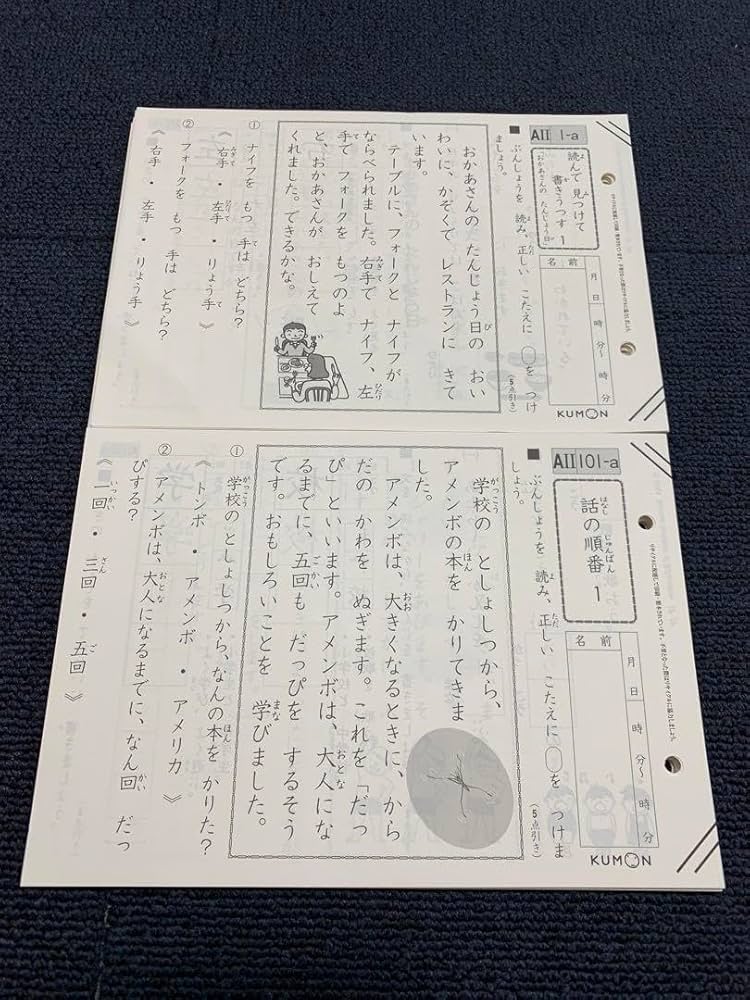 AII 1-a
読んで見つけて
書きうつす 1
「おかあさんの たんじょう日」
名前
月 日 時 分〜 時 分
KUMON
■ ぶんしょうを 読み、正しい こたえに ○を つけ
ましょう。
(5点引き)
おかあさんの たんじょう日の おい
わいに、かぞくで レストランに きて
います。
テーブルに、フォークと ナイフが
ならべられました。右手で ナイフ、左
手で フォークを もつのよ
と、おかあさんが おしえて
くれました。できるかな。
① ナイフを もつ 手は どちら？
《 右手 ・ 左手 ・ りょう手 》
② フォークを もつ 手は どちら？
《 右手 ・ 左手 ・ りょう手 》
AII 101-a
話の順番 1
名前
月 日 時 分〜 時 分
KUMON
■ ぶんしょうを 読み、正しい こたえに ○を つけま
しょう。
(5点引き)
学校の としょしつから、
アメンボの本を かりてきま
した。
アメンボは、大きくなるときに、から
だの かわを ぬぎます。これを「だっ
ぴ」といいます。アメンボは、大人にな
るまでに、五回も だっぴを するそう
です。おもしろいことを 学びました。
① 学校の としょしつから、なんの本を かりた？
《 トンボ ・ アメンボ ・ アメリカ 》
② アメンボは、大人になるまでに、なん回 だっ
ぴする？
《 一回 ・ 三回 ・ 五回 》